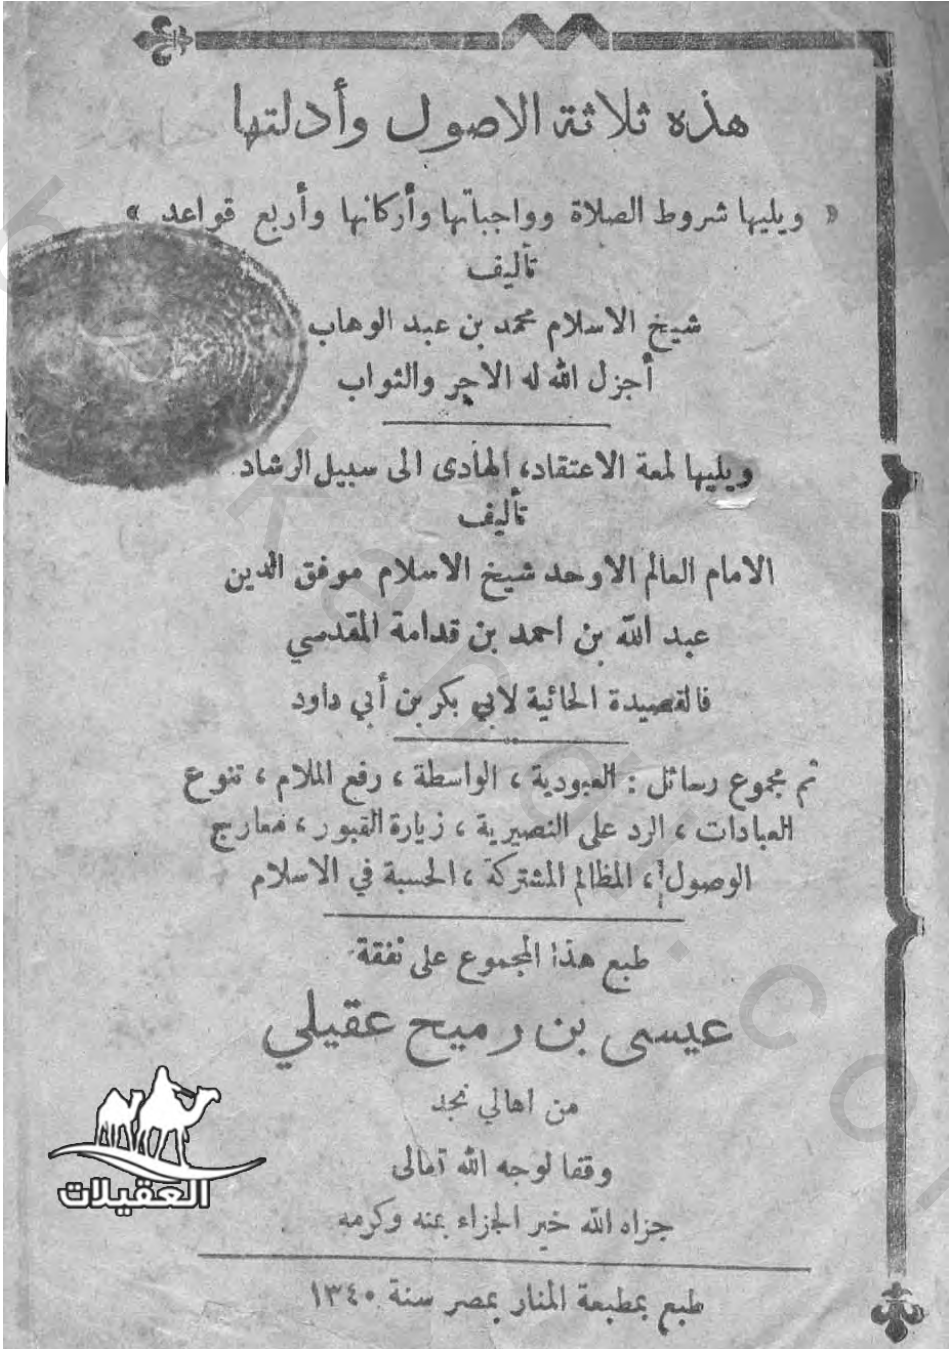 هذه ثلاثة الاصول وأدلتها
« ويليها شروط الصلاة وواجباتها وأركانها وأربع قواعد »
تأليف
شيخ الاسلام محمد بن عبد الوهاب
أجزل الله له الاجر والثواب
ويليها لمعة الاعتقاد، الهادى الى سبيل الرشاد
تأليف
الامام العالم الاوحد شيخ الاسلام موفق الدين
عبد الله بن احمد بن قدامة المقدسي
فالقصيدة الحائية لابي بكر بن أبي داود
ثم مجموع رسائل : العبودية ، الواسطة ، رفع الملام ، تنوع
العبادات ، الرد على النصيرية ، زيارة القبور ، معارج
الوصول ، المظالم المشتركة ، الحسبة في الاسلام
طبع هذا المجموع على نفقة
عيسى بن رميح عقيلي
من اهالي نجد
وقفا لوجه الله تعالى
جزاه الله خير الجزاء بمنه وكرمه
العقيلات
طبع بمطبعة المنار بمصر سنة ١٣٤٠